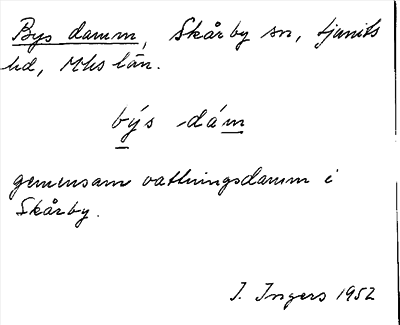 Bys damm, Skårby sn, Ljunits
hd, Mhs län.
býs -dám
gemensam vattningsdamm i
Skårby.
I. Ingers 1952